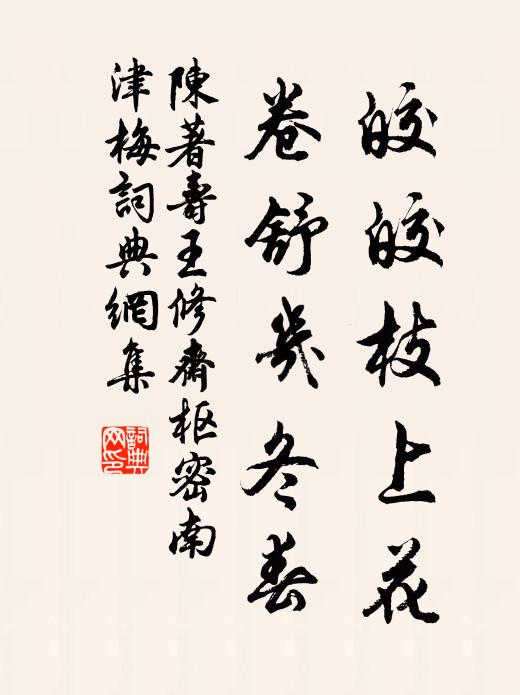 皎皎枝上花
卷舒幾冬春
陳著壽王修齋枢密南
津梅詞典網集
詞典網印